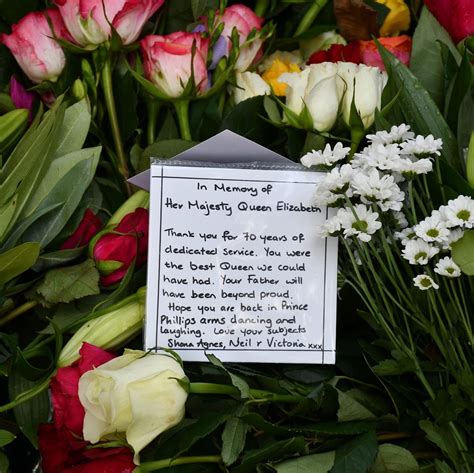 In Memory of
Her Majesty Queen Elizabeth
Thank you for 70 years of
dedicated Service. You were
the best Queen we could
have had. Your Father will
have been beyond proud.
Hope you are back in Prince
Phillips arms dancing and
laughing. Love your subjects
Shana Agnes, Neil & Victoria xxx